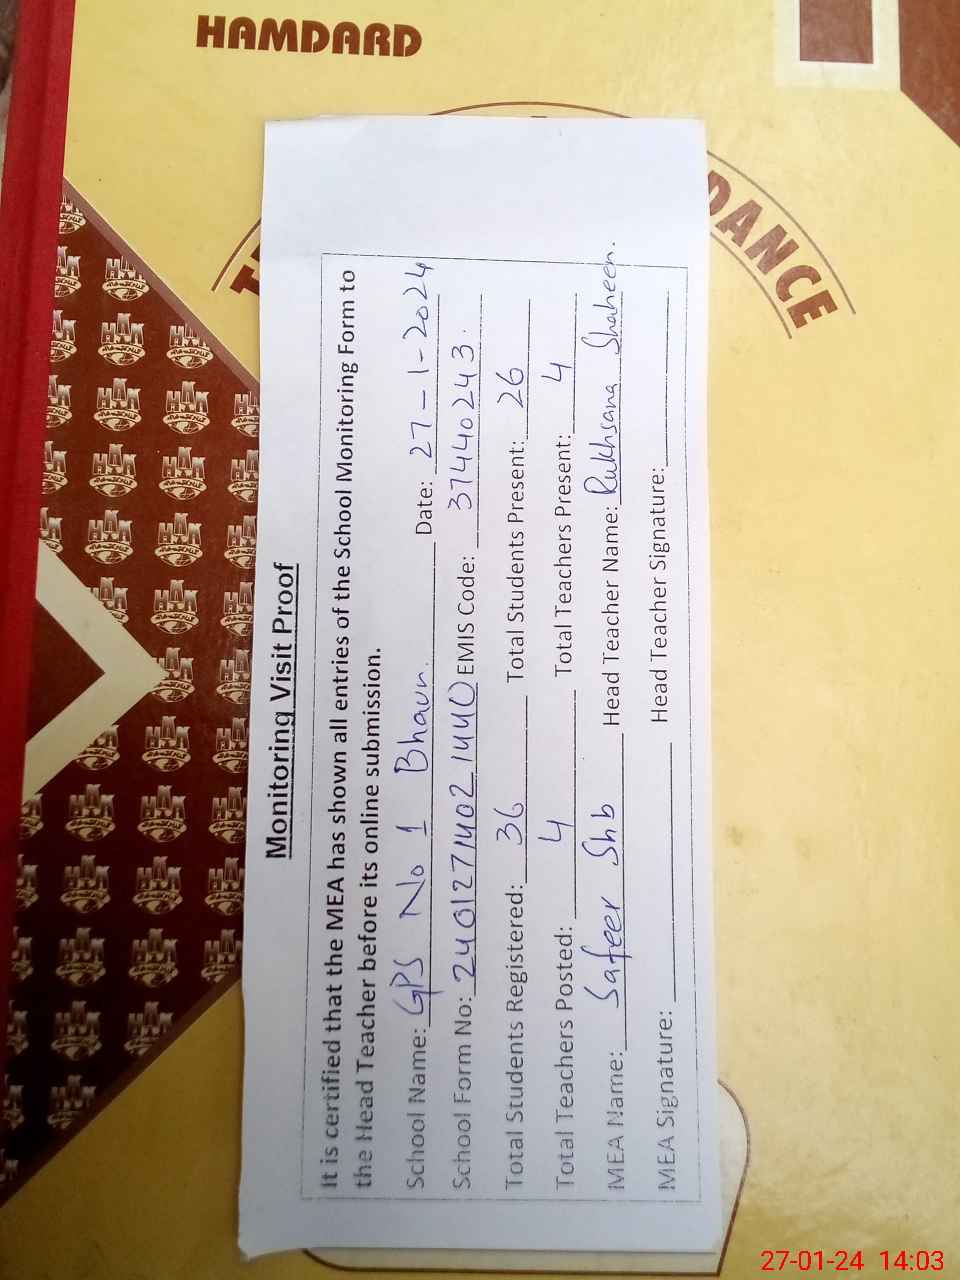 HAMDARD
DANCE
Monitoring Visit Proof
It is certified that the MEA has shown all entries of the School Monitoring Form to
the Head Teacher before its online submission.
School Name: GPS No 1 Bhaun. Date: 27-1-2024
School Form No: 24012714021440 EMIS Code: 37440243.
Total Students Registered: 36 Total Students Present: 26
Total Teachers Posted: 4 Total Teachers Present: 4
MEA Name: Safeer Shb Head Teacher Name: Rukhsana Shaheen.
MEA Signature: Head Teacher Signature:
27-01-24 14:03